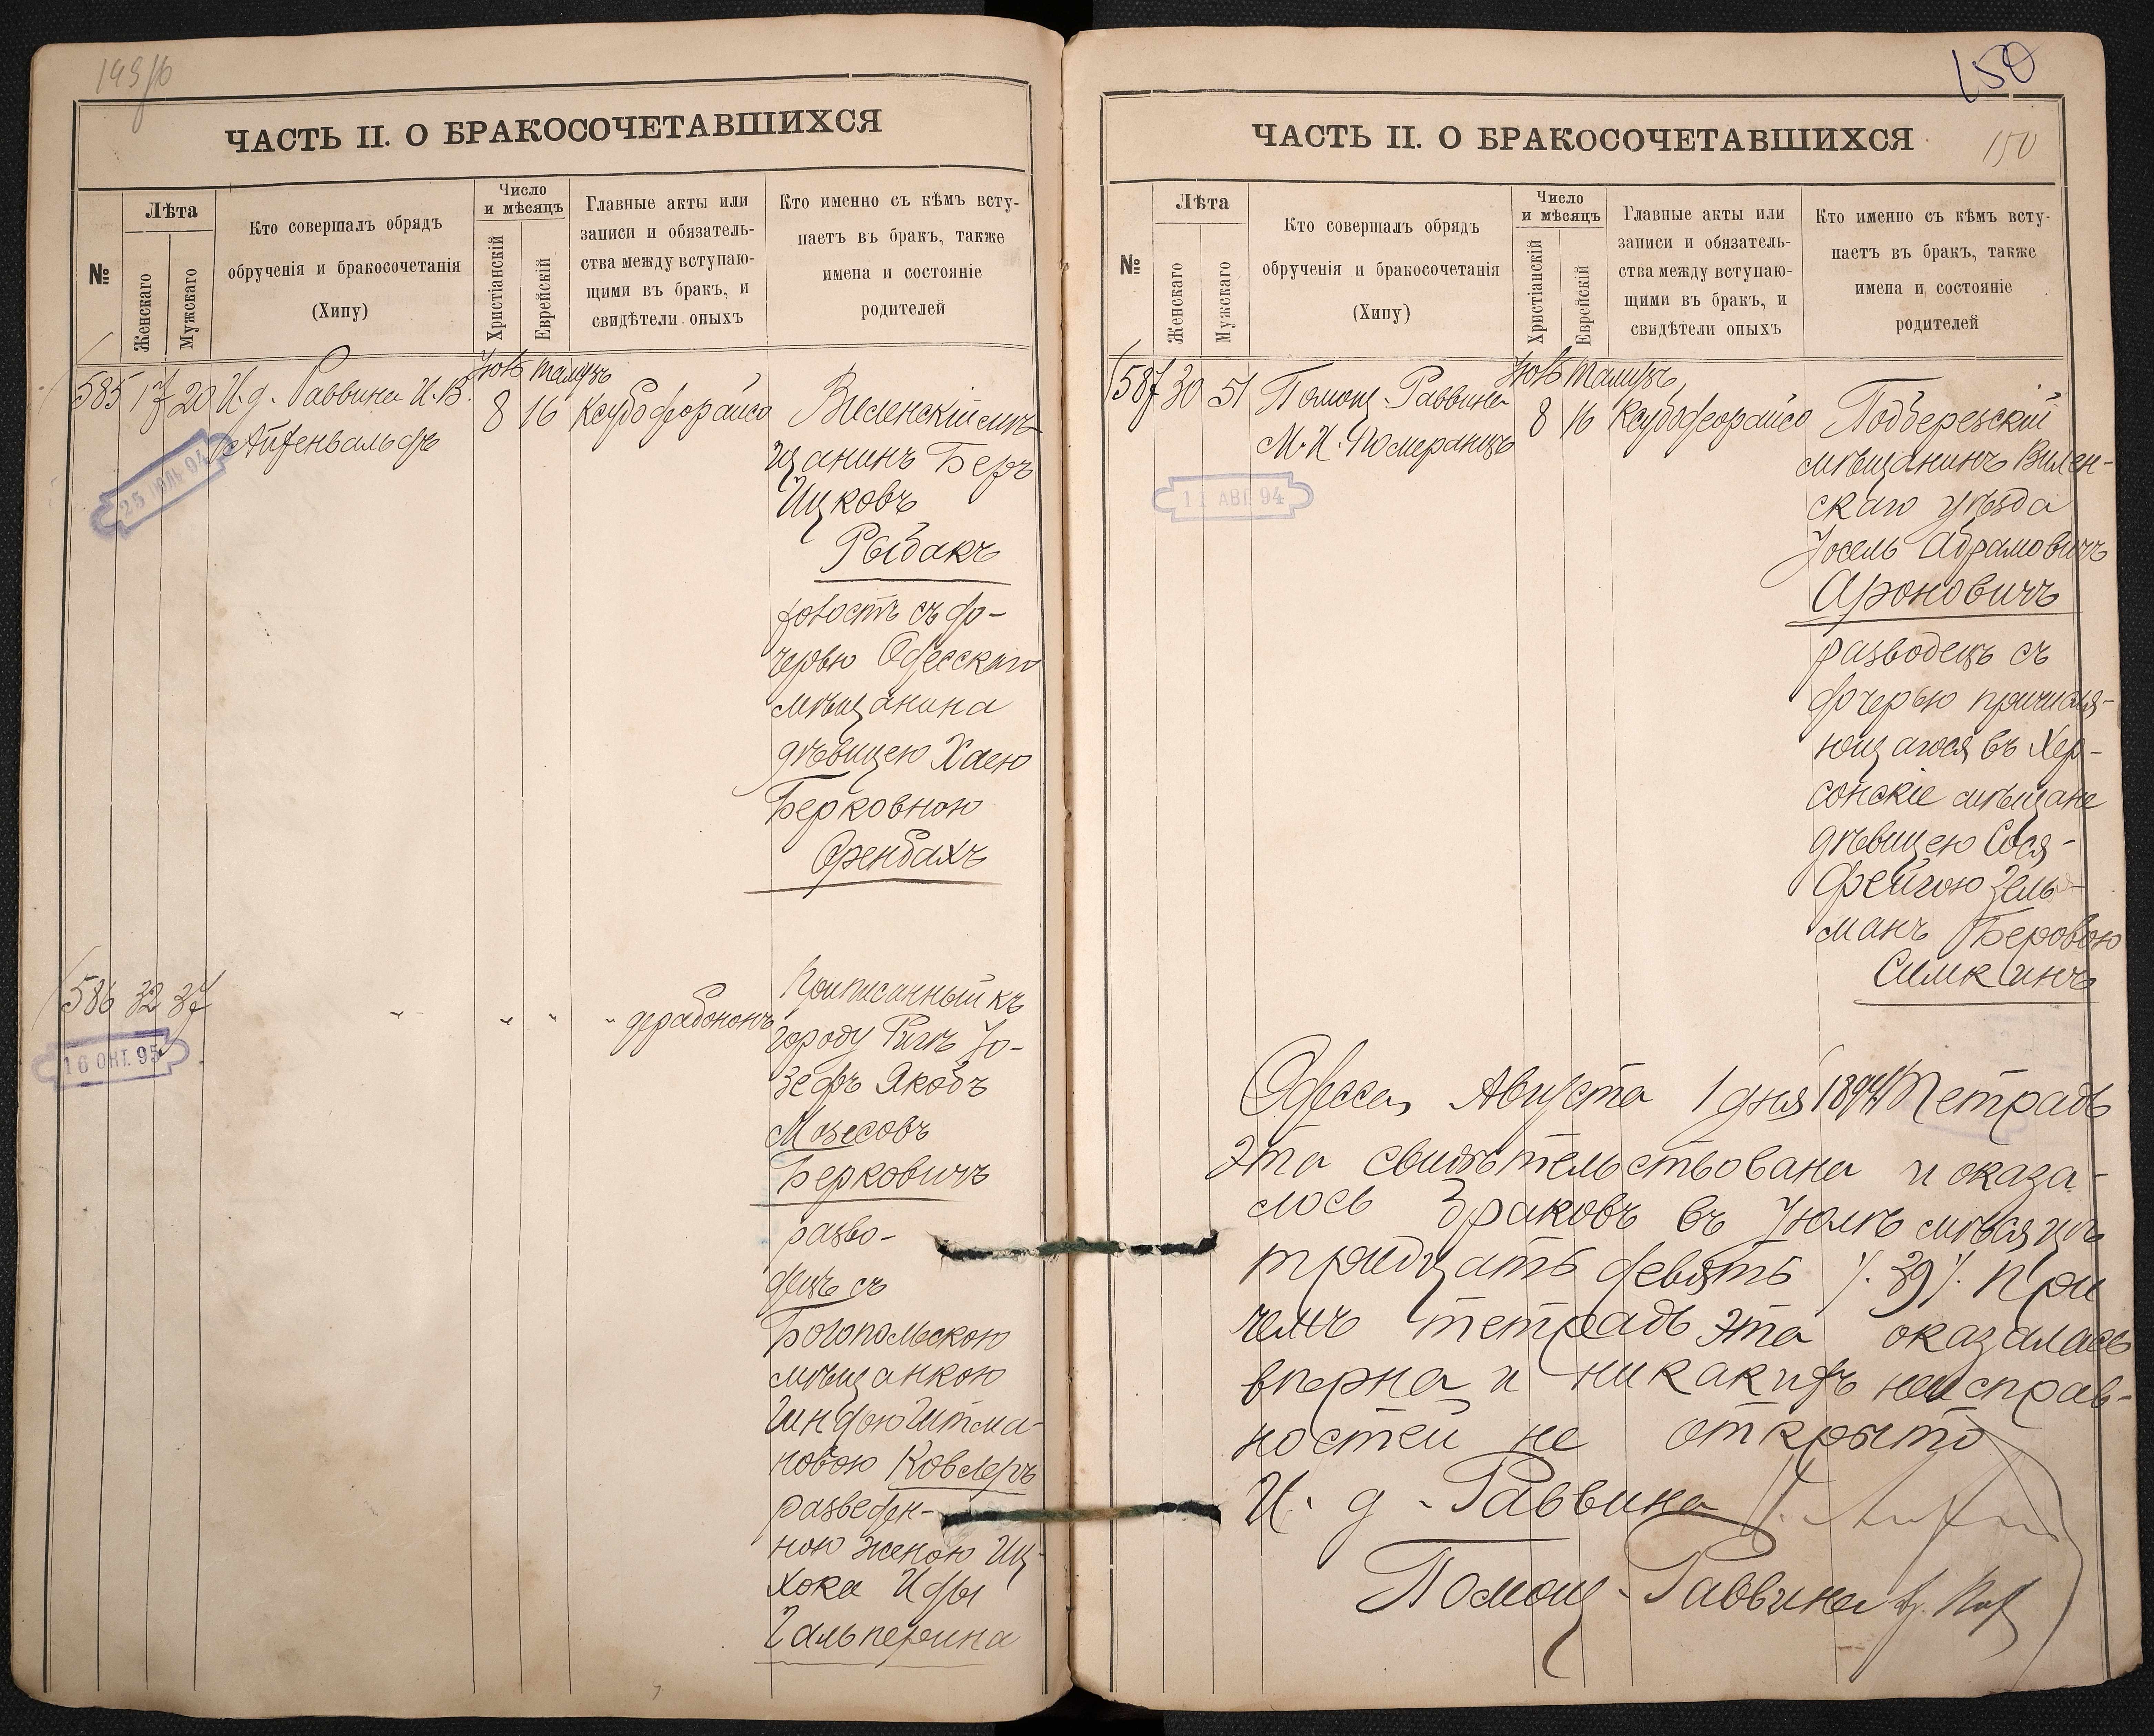 149об
ЧАСТЬ II. О БРАКОСОЧЕТАВШИХСЯ
№
Лѣта
Женскаго
Мужскаго
Кто совершалъ обрядъ
обрученія и бракосочетанія
(Хипу)
Число
и мѣсяцъ
Христіанскій
Еврейскій
Главные акты или
записи и обязатель-
ства между вступаю-
щими въ бракъ, и
свидѣтели оныхъ
Кто именно съ кѣмъ всту-
паетъ въ бракъ, также
имена и состояніе
родителей
585 17 20 И. д. Раввина И. В.
Айзенвальдъ
Іюль Тамузъ
8 16
25 ІЮЛЬ 94
Виленскій мѣ-
щанинъ Беръ
Ицковъ
Рыбакъ
холостъ съ до-
черью Одесскаго
мѣщанина
дѣвицею Хаею
Берковною
Оренбахъ
586 32 37 " " " "
16 ОКТ. 95
Приписанный къ
городу Ригѣ Іо-
зефъ Якобъ
Мозесовъ
Берковичъ
разво-
децъ съ
Богопольскою
мѣщанкою
Гитма-
новою Ковлеръ
разведен-
ною женою Иц-
хока
Гальперина
150
150
ЧАСТЬ II. О БРАКОСОЧЕТАВШИХСЯ
№
Лѣта
Женскаго
Мужскаго
Кто совершалъ обрядъ
обрученія и бракосочетанія
(Хипу)
Число
и мѣсяцъ
Христіанскій
Еврейскій
Главные акты или
записи и обязатель-
ства между вступаю-
щими въ бракъ, и
свидѣтели оныхъ
Кто именно съ кѣмъ всту-
паетъ въ бракъ, также
имена и состояніе
родителей
587 30 51 Помощ. Раввина
М. И. Померанцъ
Іюль Тамузъ
8 16
АВГ. 94
Подберезскій
мѣщанинъ Вилен-
скаго уѣзда
Іосель Абрамовичъ
Ароновичъ
разводецъ съ
дочерью причисля-
ющагося въ Хер-
сонскіе мѣщане
дѣвицею Сося-
Фейгою Зель-
манъ Беровою
Симкинъ
Одесса, Августа 1 дня 1894 Тетрадь
эта свидѣтельствована и оказа-
лось браковъ въ Іюлѣ мѣсяцѣ
тридцать девять ./. 39 ./. При
чемъ тетрадь эта оказалась
вѣрна и никакихъ неисправ-
ностей не открыто
И. д. Раввина
Помощ. Раввина